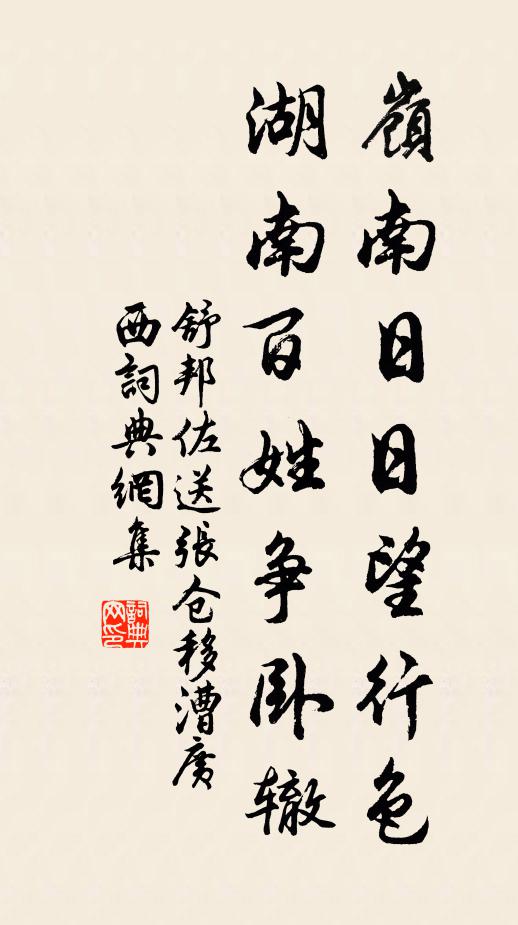 嶺南日日望行色
湖南百姓争卧辙
舒邦佐送張仓移漕廣
西詞典網集
詞典
网印